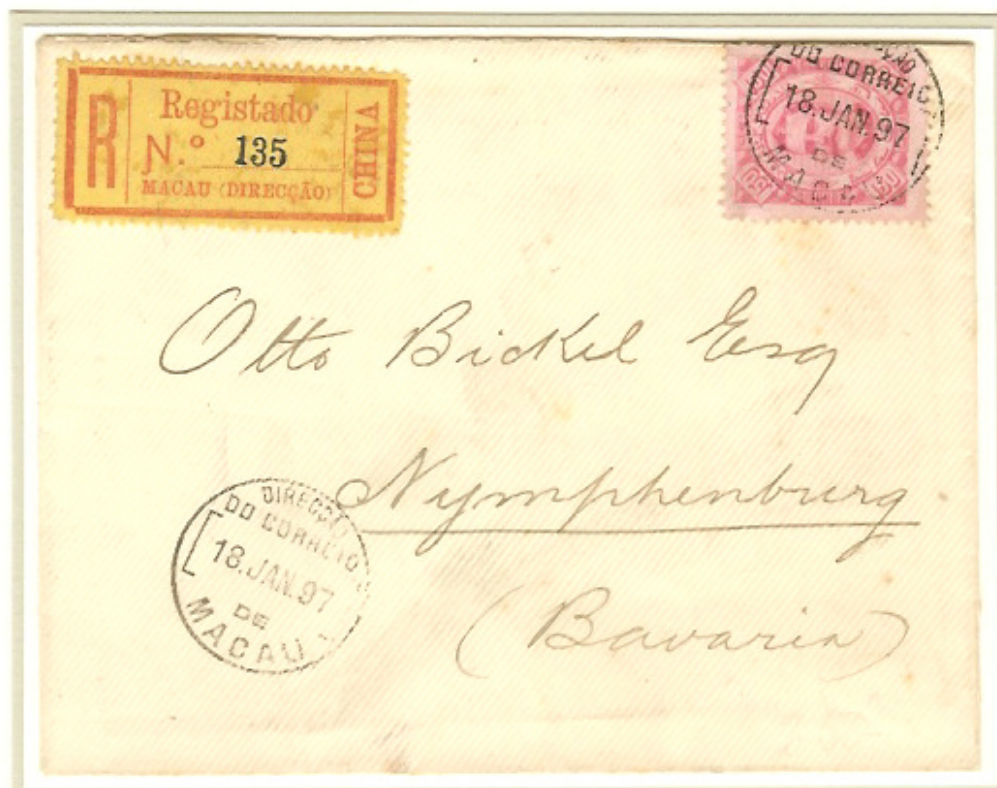 R
Registado
N.º 135
MACAU (DIRECÇÃO)
CHINA
DO CORREIO
18.JAN.97
DE
MACAU
Otto Bickel Esq
Nymphenburg
(Bavaria)
DIRECÇÃO
DO CORREIO
18.JAN.97
DE
MACAU